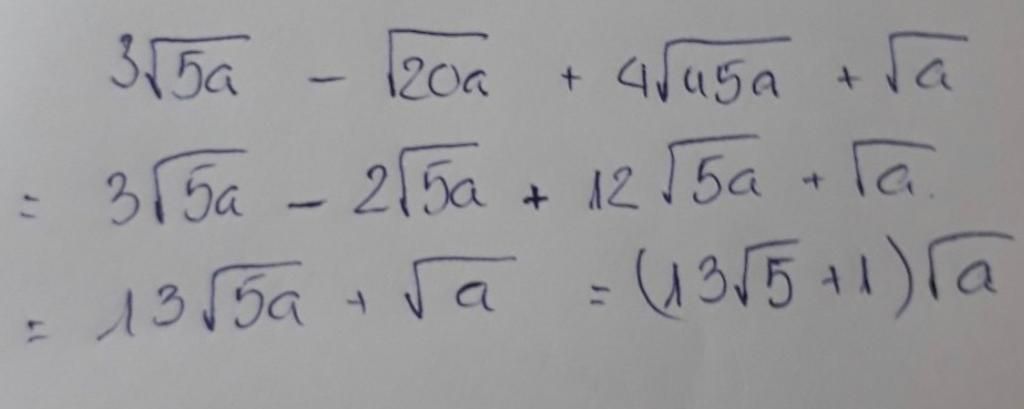 3√5a − √20a + 4√45a + √a
= 3√5a − 2√5a + 12√5a + √a.
= 13√5a + √a = (13√5 + 1)√a